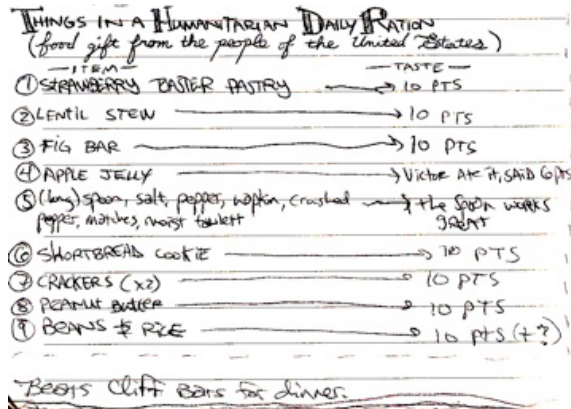 THINGS IN A HUMANITARIAN DAILY RATION
(food gift from the people of the United States)
ITEM TASTE
① STRAWBERRY TOASTER PASTRY 10 PTS
② LENTIL STEW 10 PTS
③ FIG BAR 10 PTS
④ APPLE JELLY Victor Ate it, SAID 6 pts
⑤ (long) spoon, salt, pepper, napkin, crushed the spoon works
pepper, matches, moist towlett GREAT
⑥ SHORTBREAD COOKIE 10 PTS
⑦ CRACKERS (x2) 10 PTS
⑧ PEANUT Butter 10 PTS
⑨ BEANS & RICE 10 pts (+?)
Beats Cliff Bars for dinner.